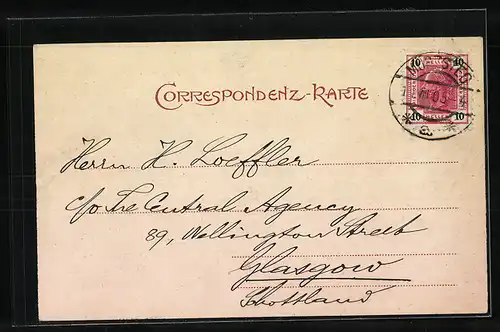 CORRESPONDENZ-KARTE
10 10
10 10
* a *
Herrn H. Loeffler
c/o The Central Agency
89, Wellington Street
Glasgow
Schottland